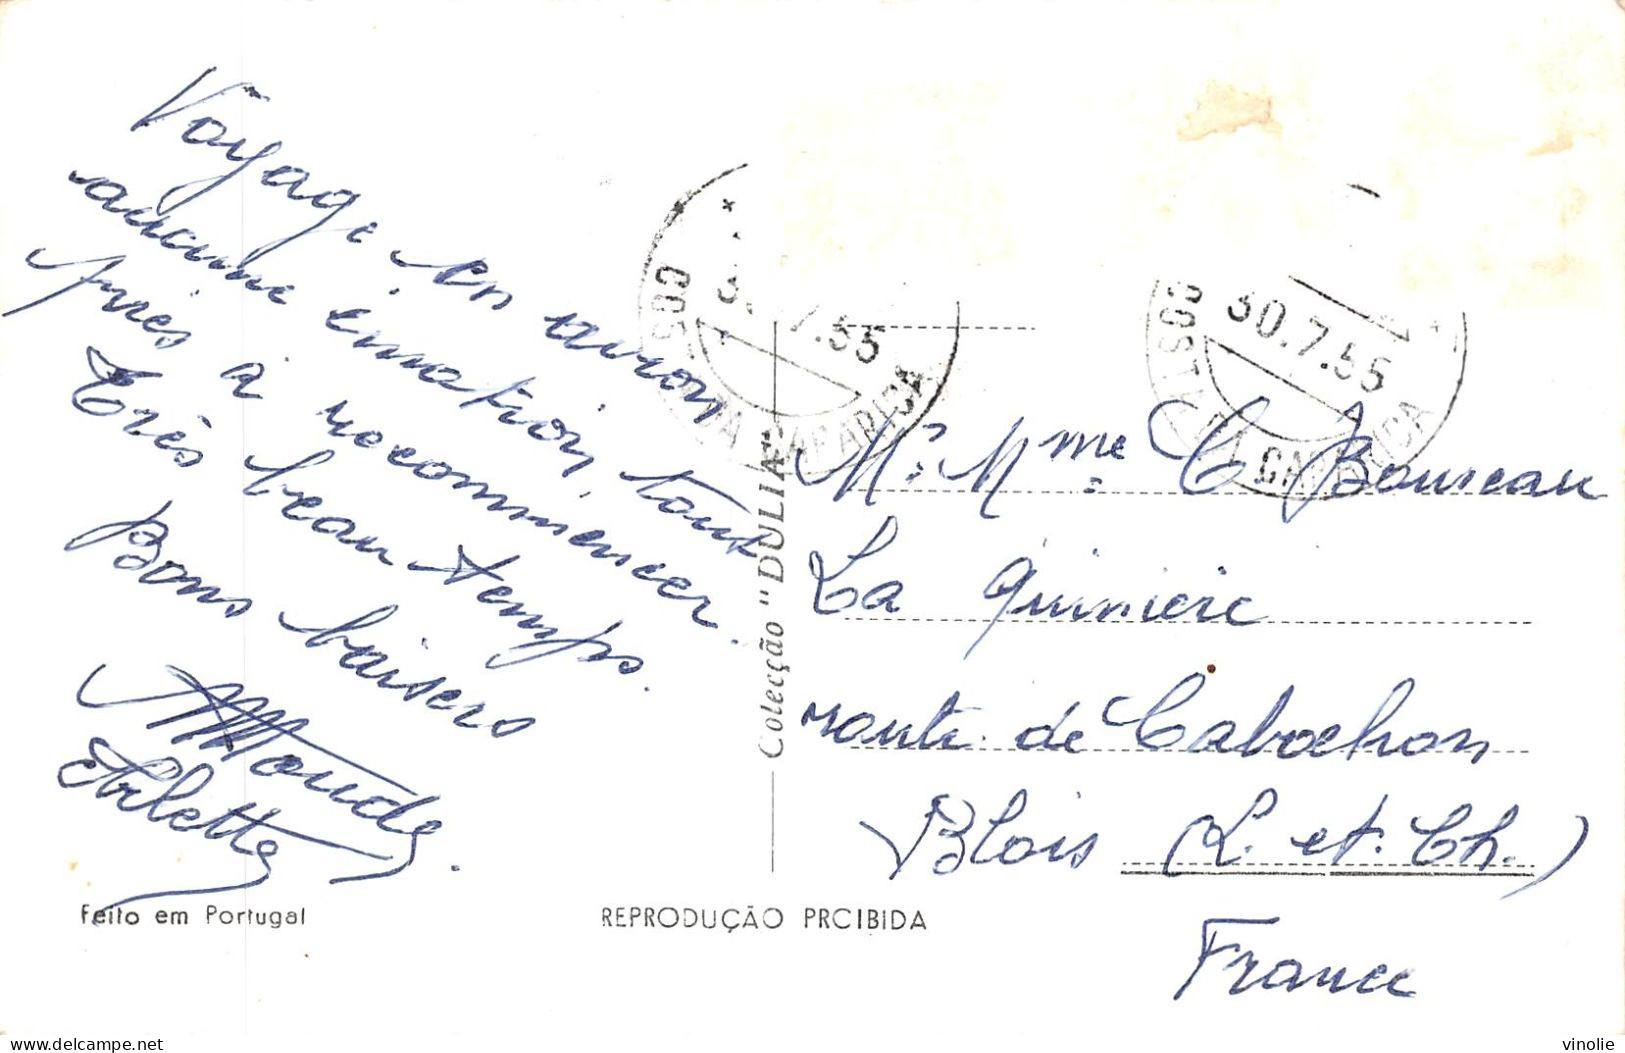 Voyage en avion
aucune émotion, tous
près à recommencer.
Très beau temps.
Bons baisers
Maude.
Arlette
COSTA DA CAPARICA
30.7.55
COSTA DA CAPARICA
30.7.55
Mr. Mme. C Bourreau
La quinière
route de Cabochon
Blois (L. et. Ch.)
France
Colecção "DULIA"
Feito em Portugal
REPRODUÇÃO PROIBIDA
delcampe.net
vinolie